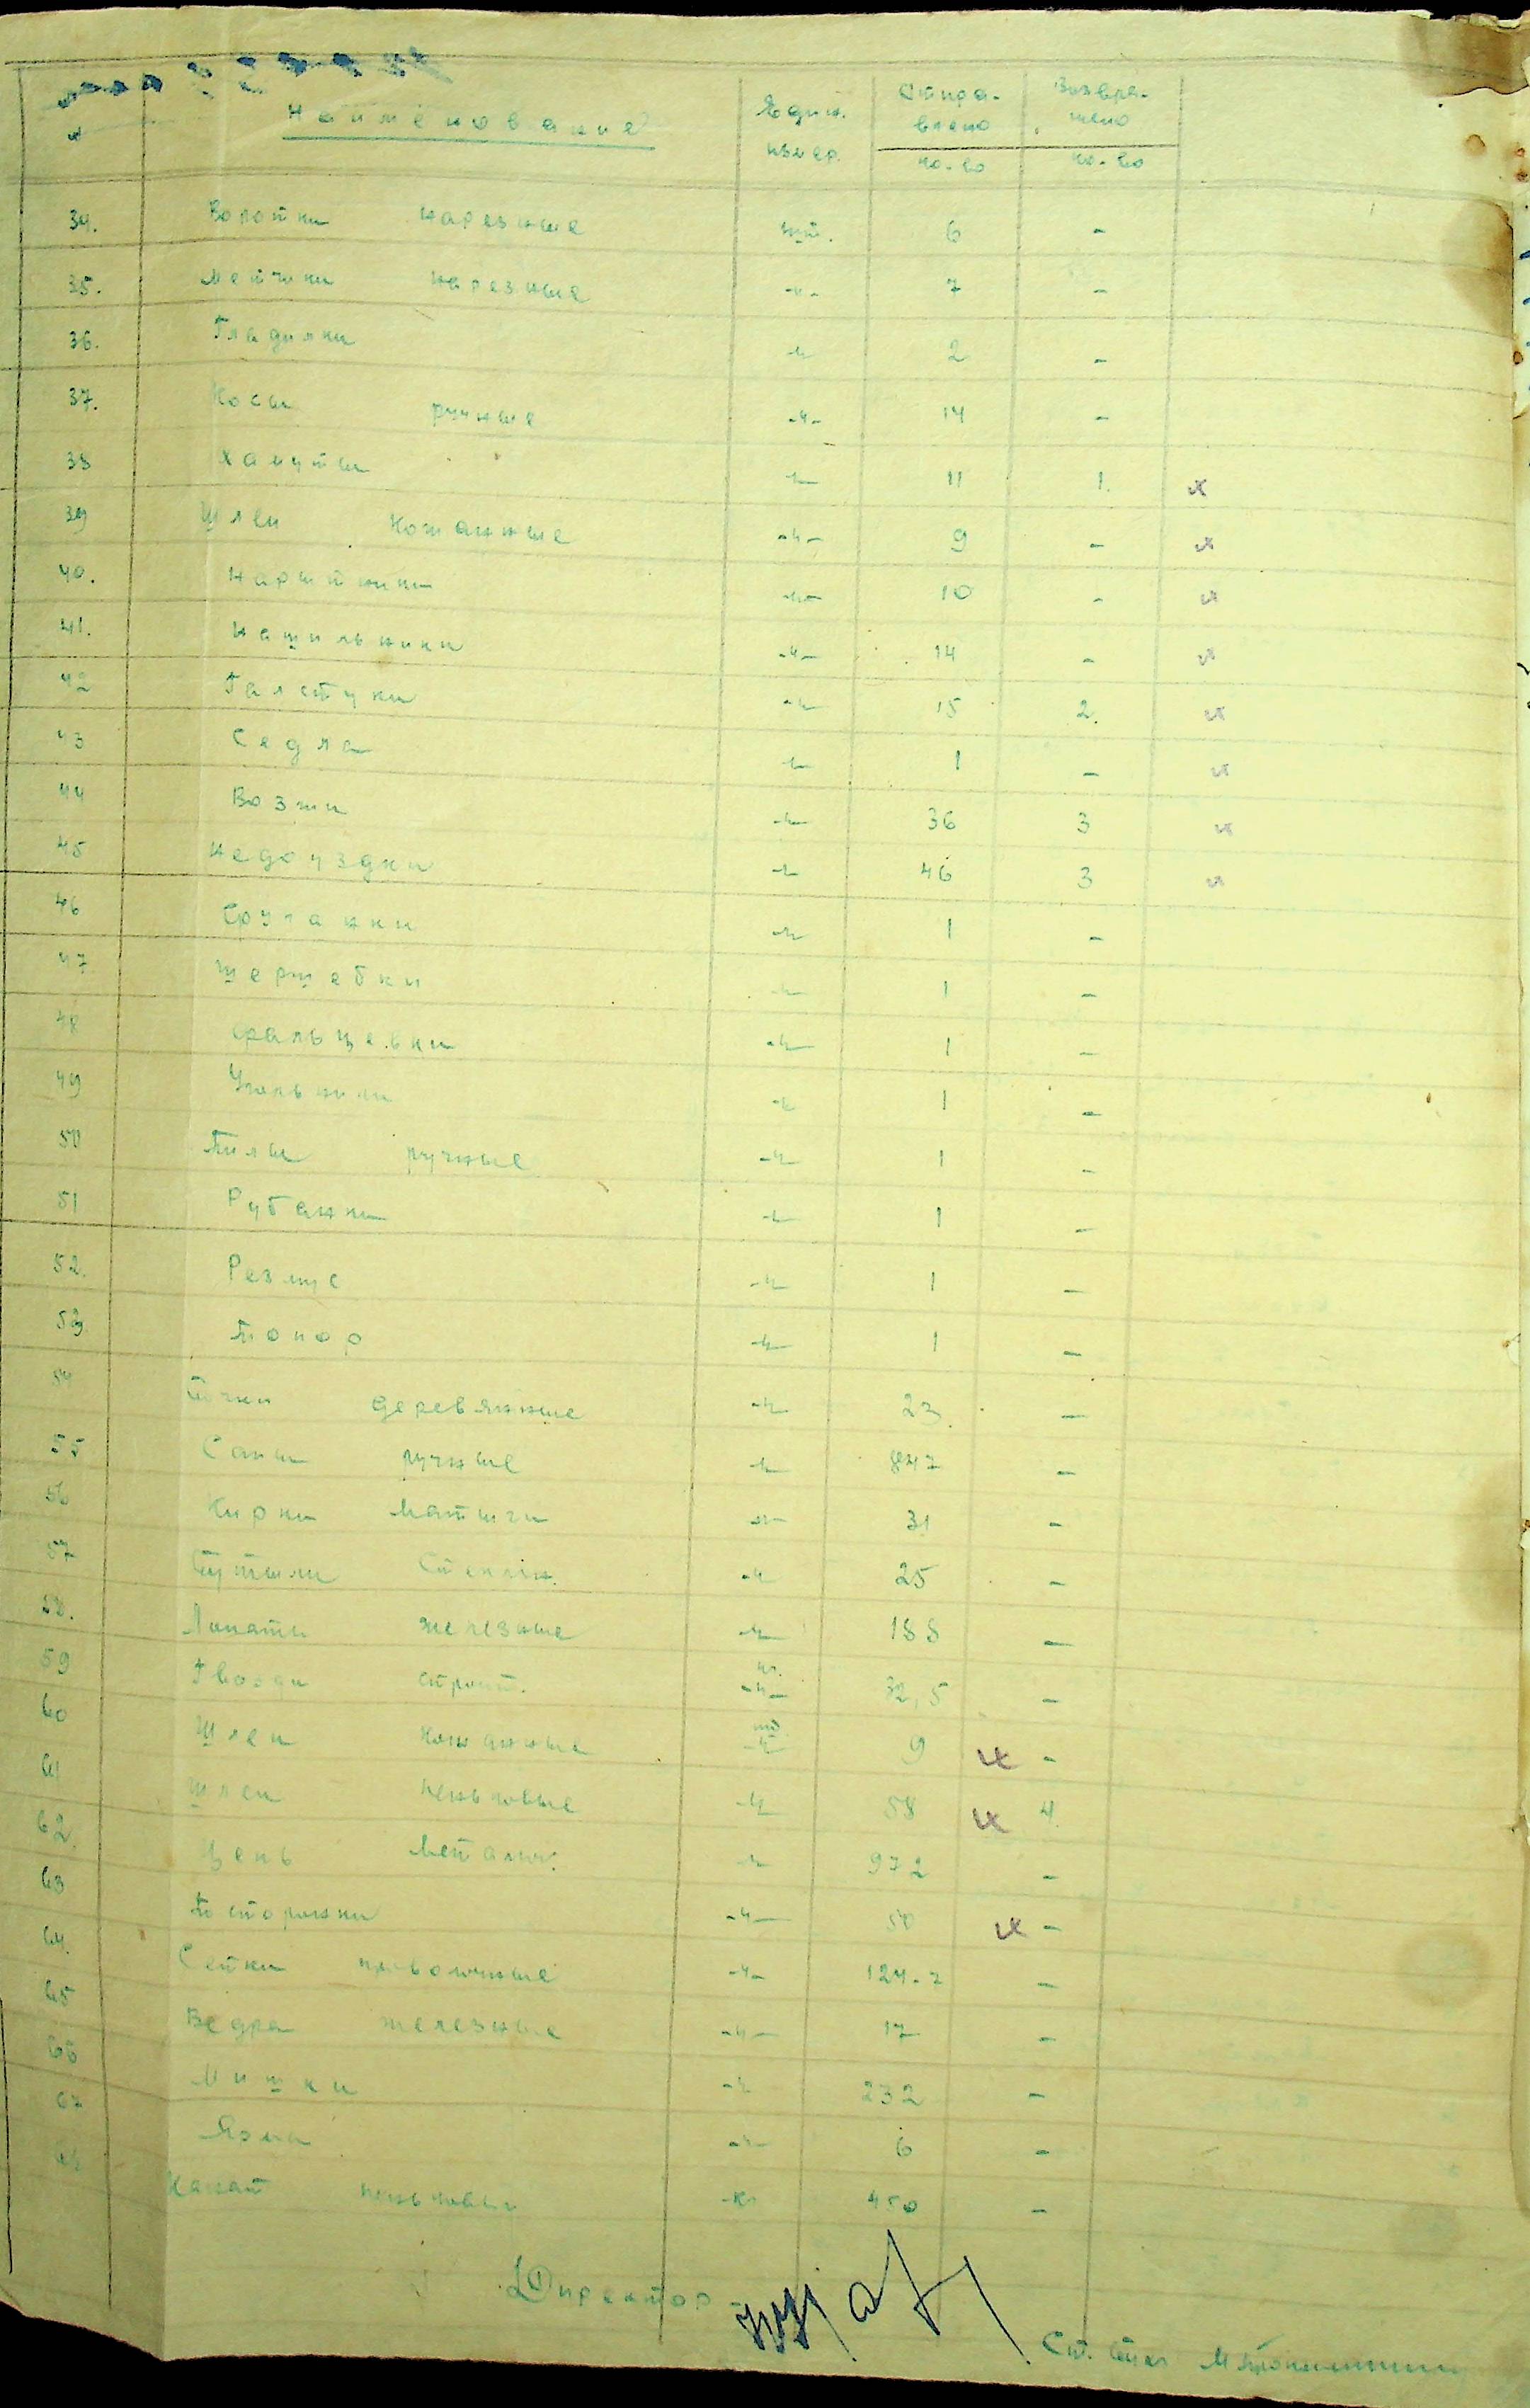 № Наименование Един. измер. Отправлено ко-во Возвращено ко-во
34. Воротки нарезные шт. 6 -
35. Метчики нарезные -"- 7 -
36. Гладилки -"- 2 -
37. Косы ручные -"- 14 -
38 Хамуты -"- 11 1.
39 Шлеи кожанные -"- 9 -
40. Наритники -"- 10 -
41. Нашильники -"- 14 -
42 Галстуки -"- 15 2.
43 Седла -"- 1 -
44 Возжи -"- 36 3
45 Недоуздки -"- 46 3
46 Фуганки -"- 1 -
47 Шершебки -"- 1 -
48 Фальцевки -"- 1 -
49 -"- 1 -
50 Пилы ручные -"- 1 -
51 Рубанки -"- 1 -
52. Резмус -"- 1 -
53 Топор -"- 1 -
54 деревянные -"- 23 -
55 Санки ручные -"- 847 -
56 Кирки Матыги -"- 31 -
57 Бутыли Стеклян. -"- 25 -
58. Лопаты железные -"- 188 -
59 Гвозди строит. кг. -"- 32,5 -
60 Шлеи кожанные шт -"- 9 -
61 Шлеи пеньковые -"- 58 4.
62. Цепь Металич. -"- 972 -
63 Посторонки -"- 50 -
64. Сетки проволочные -"- 124-2 -
65 Ведра железные -"- 17 -
66 Мишки -"- 232 -
67 -"- 6 -
68 Канат пеньковый -кг 450 -
Директор -
Ст. бух